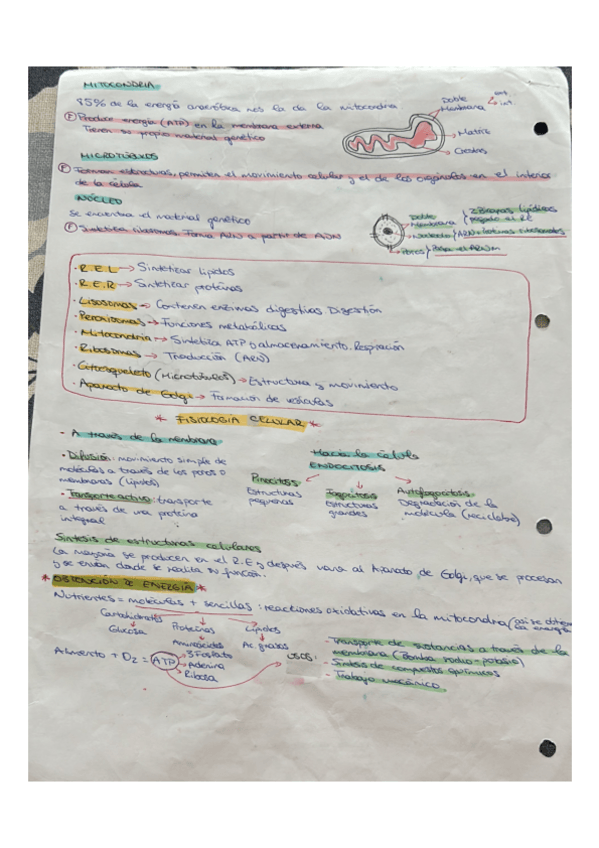 MITOCONDRIA
85% de la energía anaeróbica nos la da la mitocondria
F Produce energía (ATP) en la membrana externa
Tienen su propio material genético
Doble Membrana
ext.
int.
Matriz
Crestas
MICROTÚBULOS
F Forman estructuras, permiten el movimiento celular y el de los orgánulos en el interior
de la célula
NÚCLEO
Se encuentra el material genético
F Sintetiza ribosomas. Forma ARN a partir de ADN
Doble Membrana
2 Bicapas lipídicas
pegado al RE
Nucleolo
ARN +
Poros
· R.E.L → Sintetizar lípidos
· R.E.R → Sintetizar proteínas
· Lisosomas → Contienen enzimas digestivas Digestión
· Peroxisomas → Funciones metabólicas
· Mitocondria → Sintetiza ATP y almacenamiento. Respiración
· Ribosomas → Traducción (ARN)
· Citoesqueleto (Microtúbulos) → Estructura y movimiento
· Aparato de Golgi → Formación de vesículas
* FISIOLOGÍA CELULAR *
- A través de la membrana
· Difusión: movimiento simple de
moléculas a través de los poros o
membranas (Lípidos)
· Transporte activo: transporte
a través de una proteína
integral
Hacia la célula
ENDOCITOSIS
Pinocitosis
Estructuras
pequeñas
Fagocitosis
Estructuras
grandes
Autofagocitosis
Degradación de la
molécula (reciclables)
Síntesis de estructuras celulares
La mayoría se producen en el R.E y después van al Aparato de Golgi, que se procesan
y se envían donde se realiza su función.
* OBTENCIÓN DE ENERGÍA *
Nutrientes = moléculas + sencillas : reacciones oxidativas en la mitocondria (así se obtiene
la energía
Carbohidratos
Proteínas
Lípidos
Glucosa
Aminoácidos
Ac. grasos
Alimento + O2 = ATP
3 Fosfato
Adenina
Ribosa
USOS:
- Transporte de sustancias a través de la
membrana (Bomba sodio-potasio)
- Síntesis de compuestos químicos
- Trabajo mecánico.